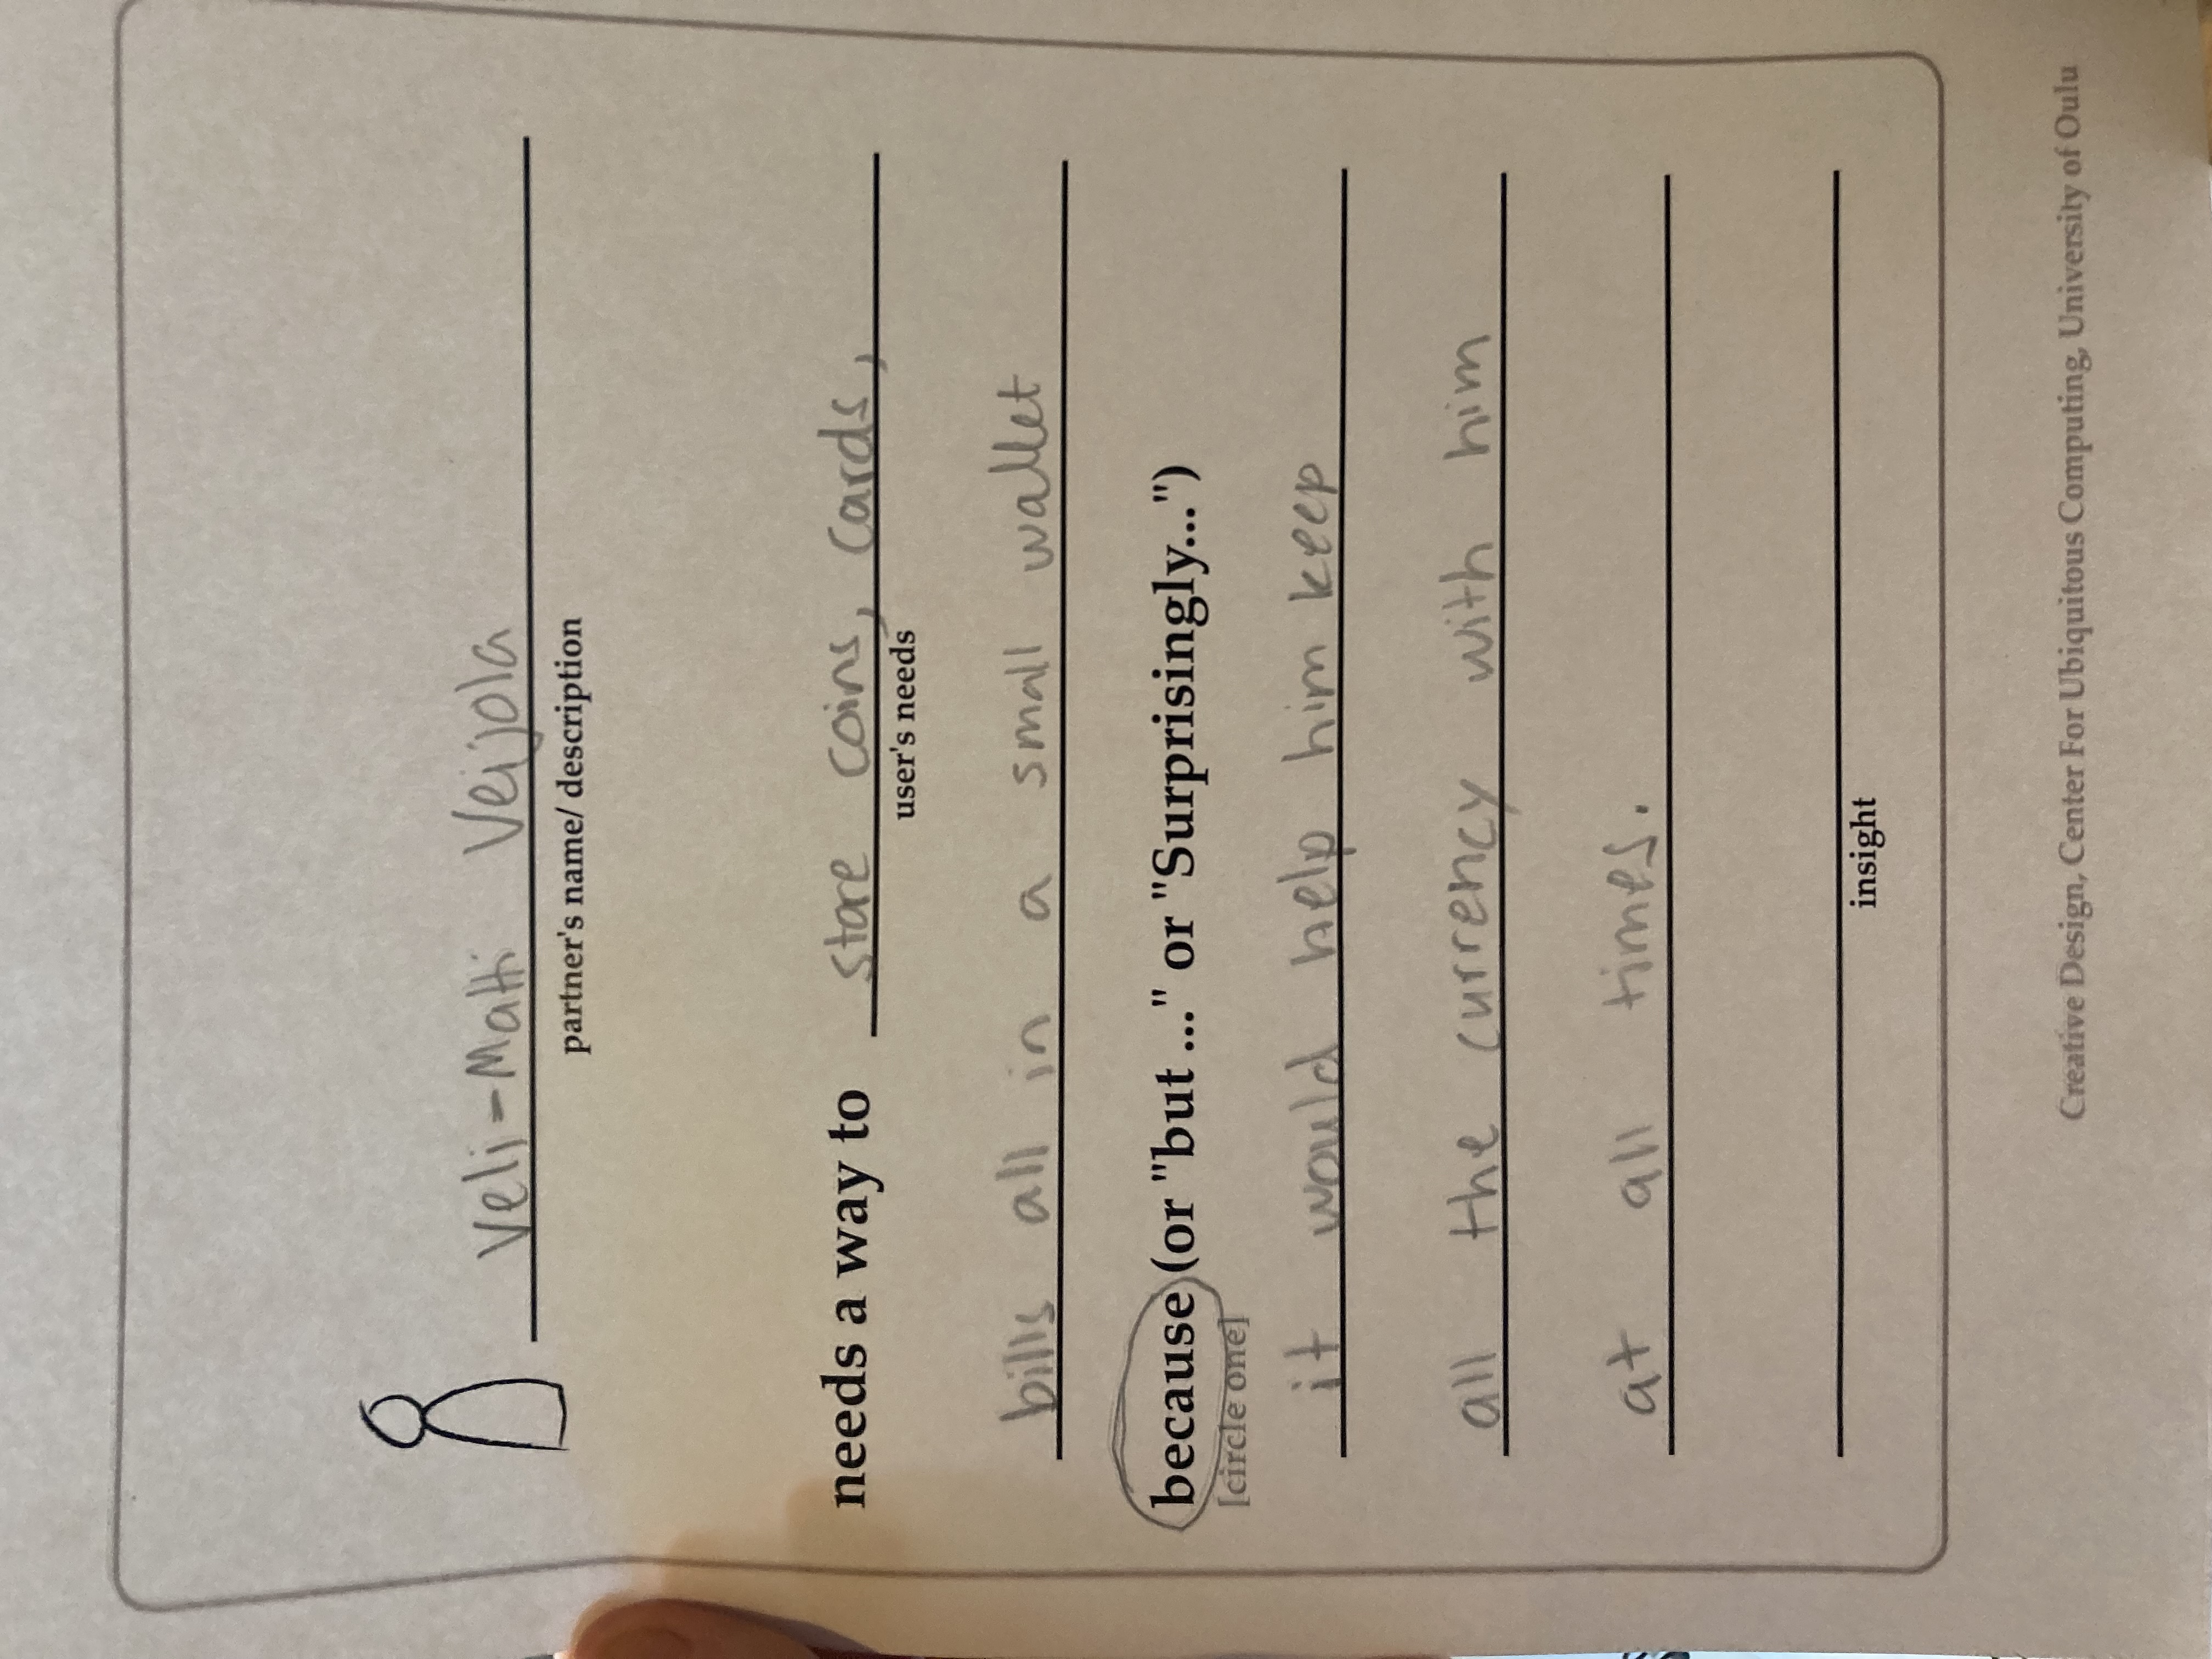 Veli-Matti Veijola
partner's name/ description
needs a way to store coins, cards,
user's needs
bills all in a small wallet
because (or "but ..." or "Surprisingly...")
[circle one]
it would help him keep
all the currency with him
at all times.
insight
Creative Design, Center For Ubiquitous Computing, University of Oulu